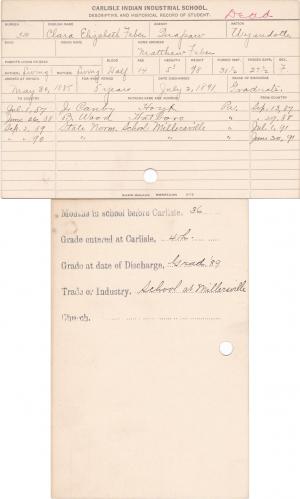 CARLISLE INDIAN INDUSTRIAL SCHOOL.
DESCRIPTIVE AND HISTORICAL RECORD OF STUDENT.
Dead
NUMBER ENGLISH NAME AGENCY NATION
Clara Elizabeth Faber Quapaw Wyandotte
HOME ADDRESS
Matthew Faber
Living Living Half 14 98
May 30, 1885 5 years July 2, 1891 Graduate.
July 1, 87 J. Canby Pa. Sep. 13, 87
June 26, 88 B. Wood Hatboro " 88
Sep. 2, 89 State Norm. School Millersville " July 1, 91
" 90 " " " June 30, 91
Months in school before Carlisle, 36
Grade entered at Carlisle, 4th
Grade at date of Discharge, Grad. '89
Trade or Industry, School at Millersville
Church,